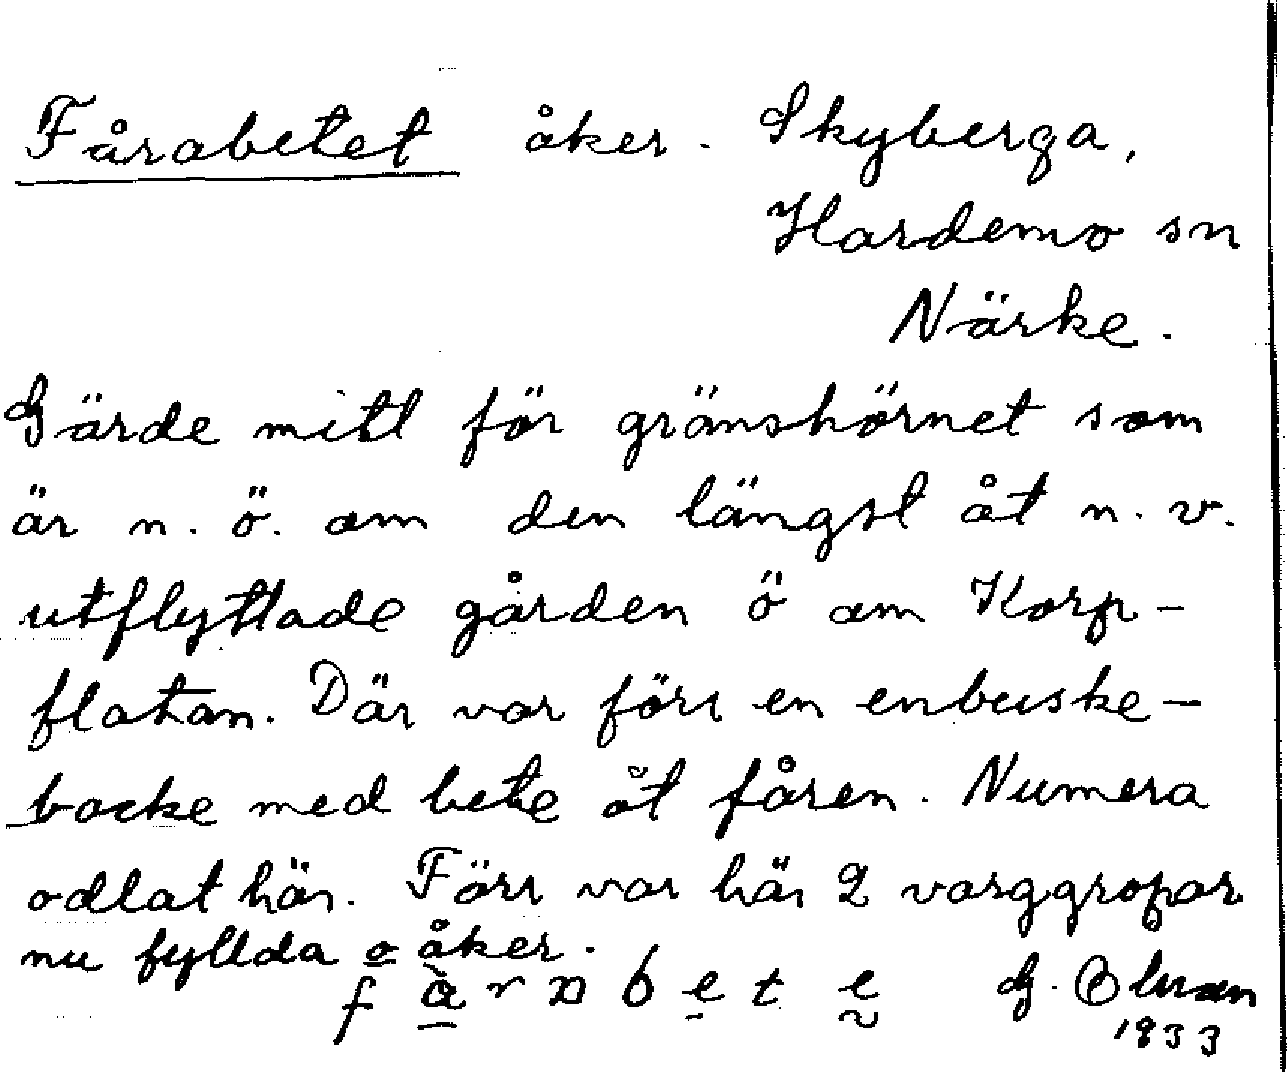 Fårabetet åker. Skyberga,
Hardemo sn
Närke.
Gärde mitt för gränshörnet som
är n. ö. om den längst åt n. v.
utflyttade gården ö om Korp-
flatan. Där var förr en enbuske-
backe med bete åt fåren. Numera
odlat här. Förr var här 2 varggropar
nu fyllda o åker.
fårabete G. Olsson
1933